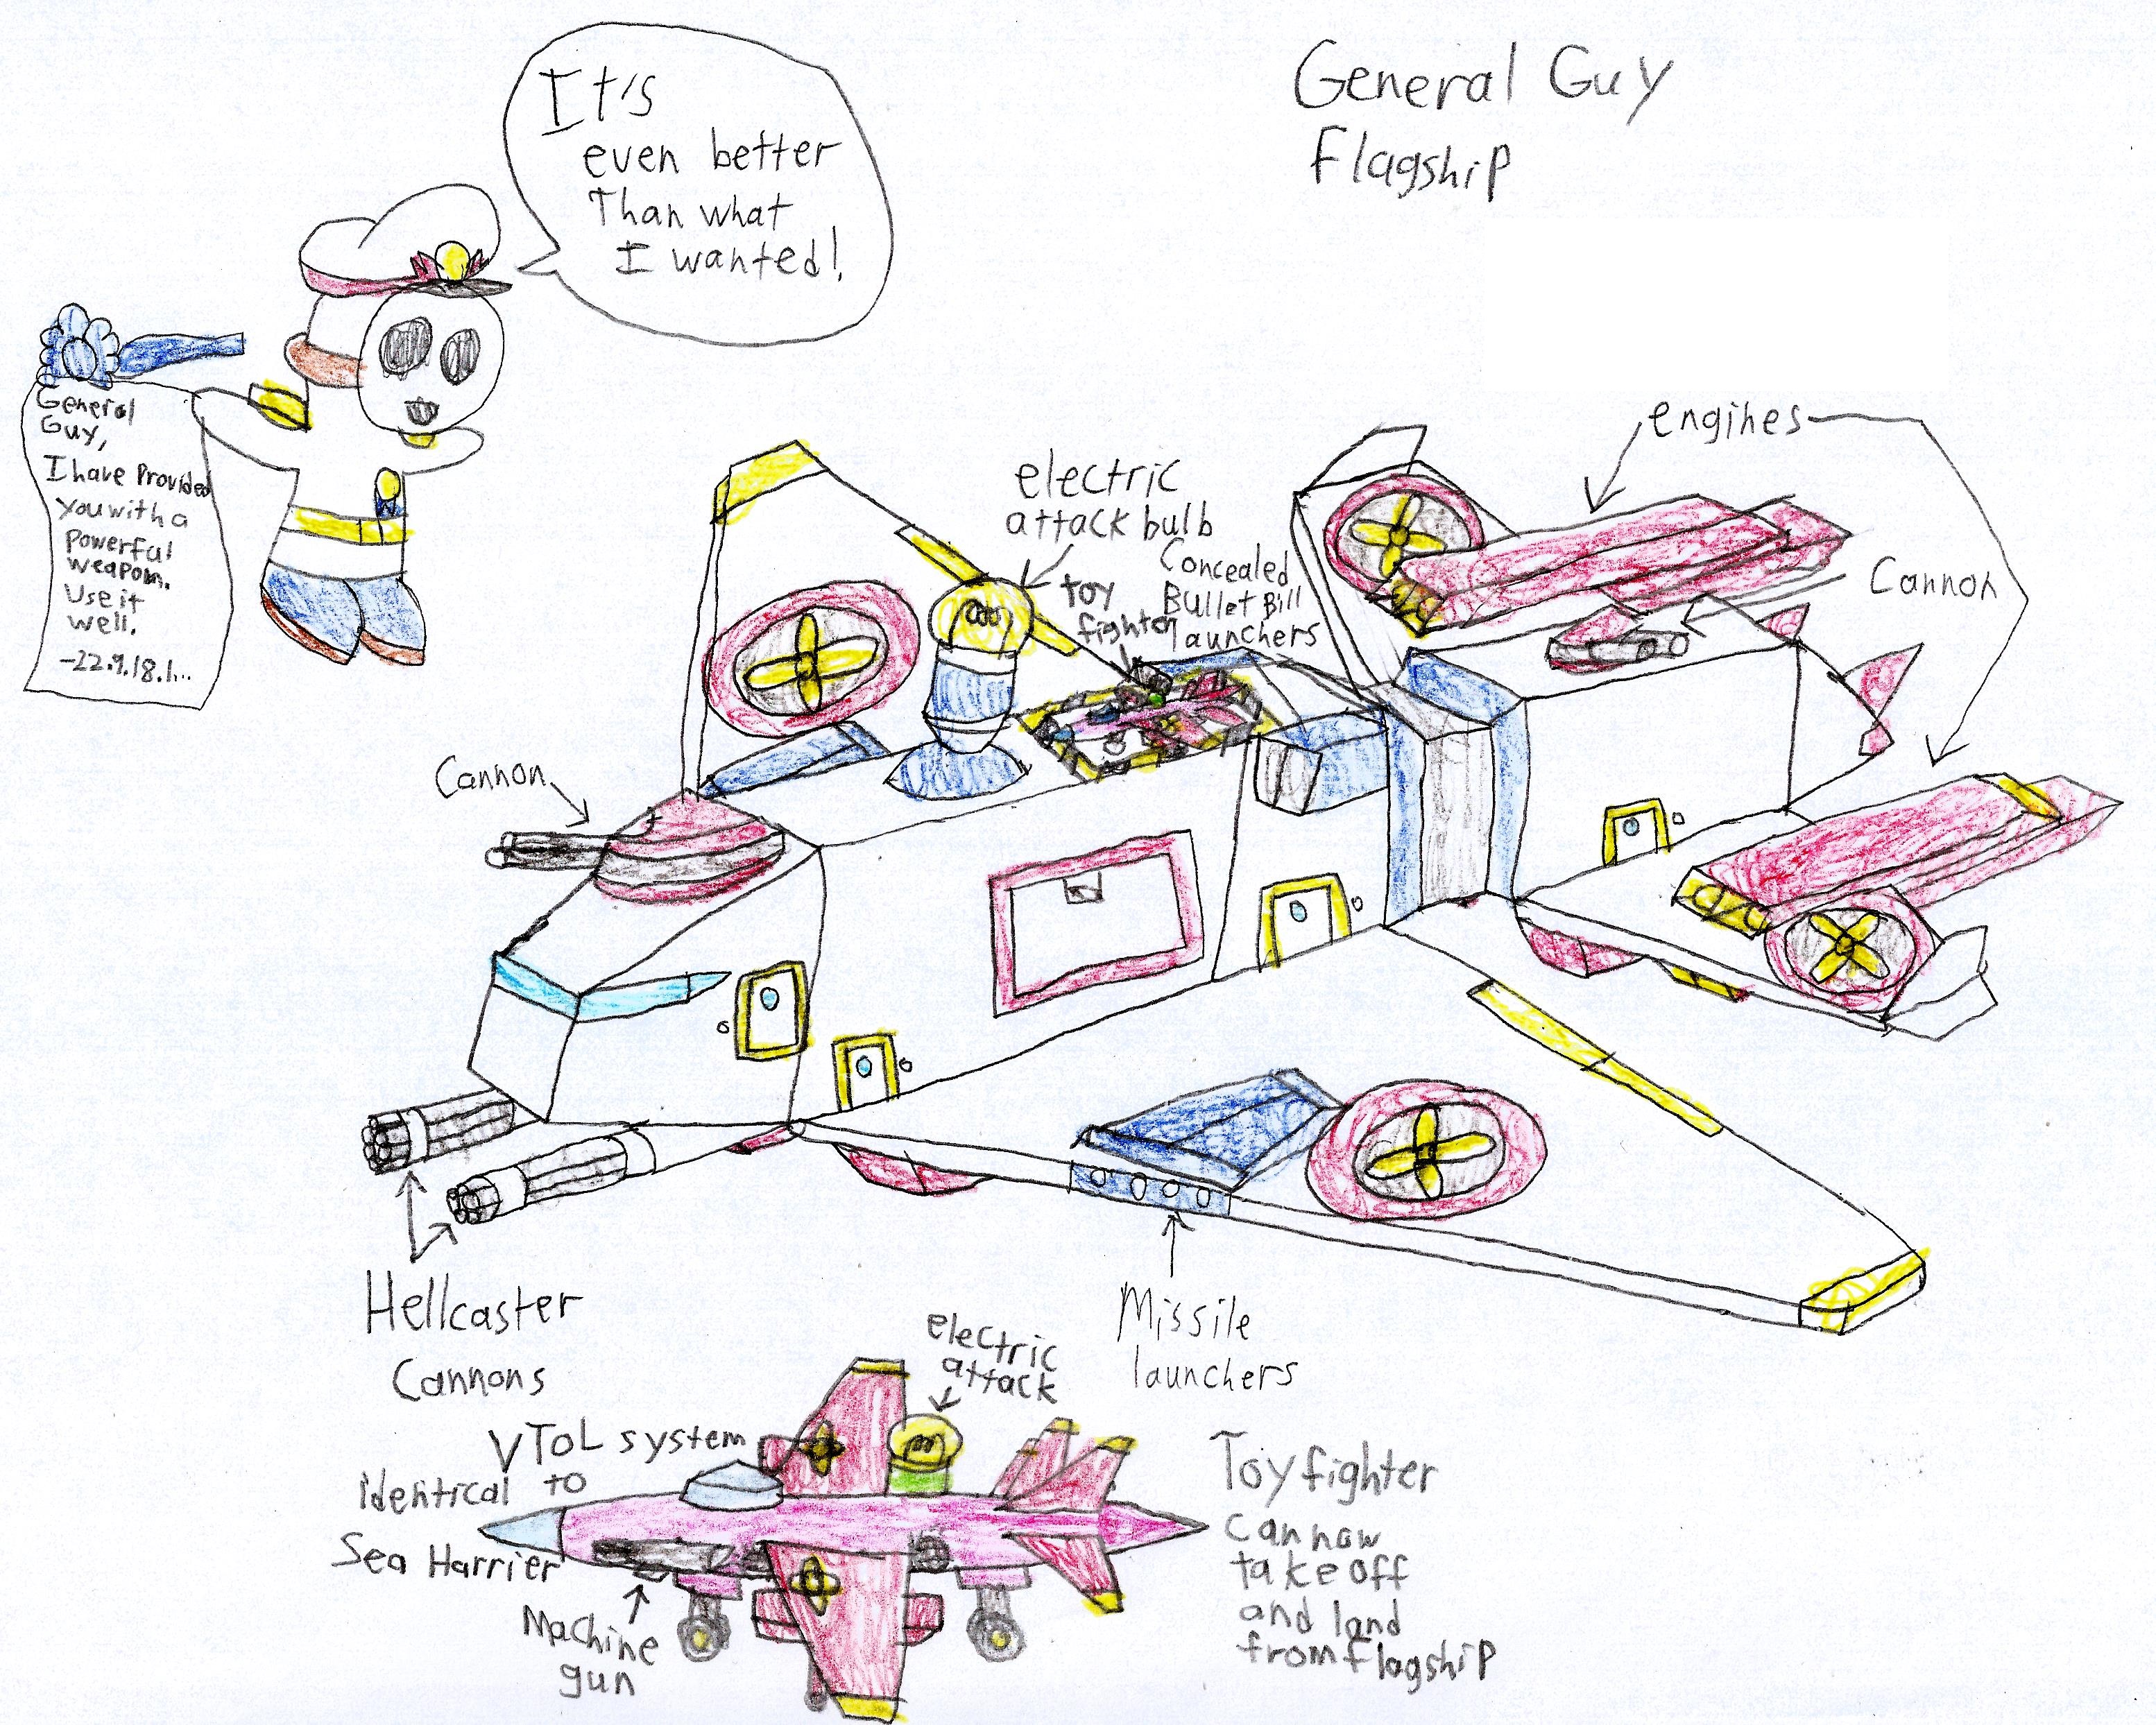 General Guy
Flagship
It's
even better
Than what
I wanted!
General
Guy,
I have Provided
you with a
Powerful
weapom.
Use it
well.
-22.9.18.1...
engines
electric
attack bulb
Concealed
Bullet Bill
launchers
toy
fighter
Cannon
Cannon
Hellcaster
Cannons
Missile
launchers
electric
attack
VToL system
identical to
Sea Harrier
Machine
gun
Toy fighter
can now
take off
and land
from flagship